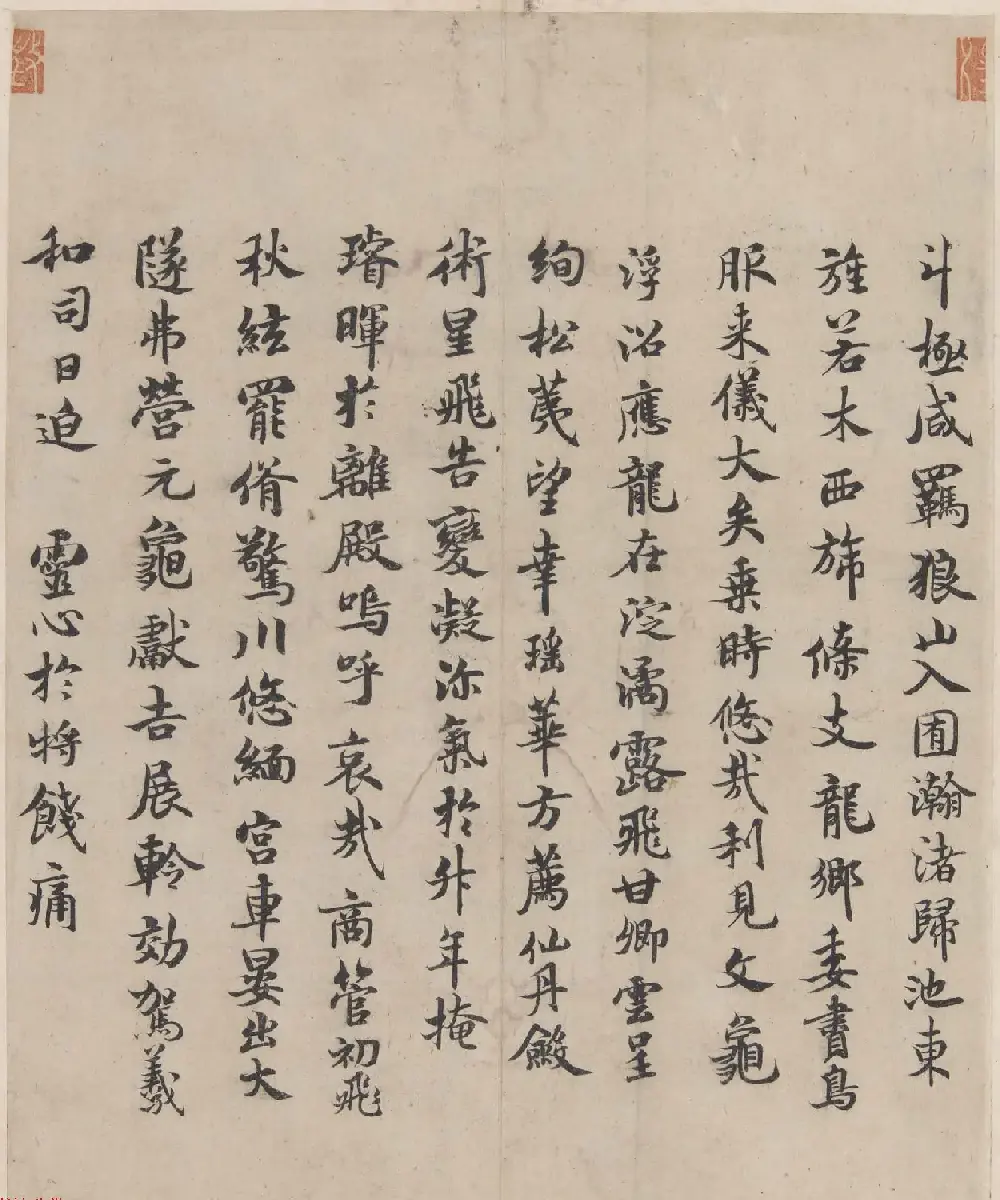 斗極咸羈狼山入囿瀚渚歸池東
旌若木西旆條支龍鄉委書鳥
服来儀大矣乗時悠哉利見文龜
浮沼應龍在淀潏露飛甘卿雲呈
絢松荑望幸瑶華方薦仙丹斂
術星飛告變凝沴氣於升年掩
璿暉於離殿嗚呼哀哉商管初飛
秋紘罷脩驚川悠緬宮車晏出大
隧弗營元龜獻吉展軨効駕羲
和司日迫 靈心於將餞痛